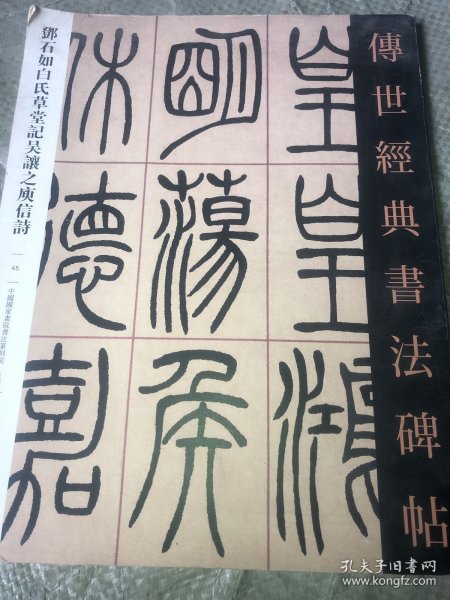 傳世經典書法碑帖
皇皇鴻
朙蕩侯
休德嘉
鄧石如白氏草堂記吴讓之庾信詩
45
中國國家畫院書法篆刻院
孔夫子旧书网
www.kongfz.com